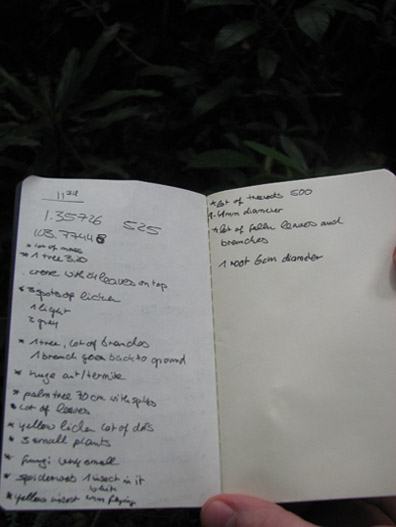 1.35726 525
103.77448
* lot of moss
* 1 tree 3.20
with leaves on top
* 3 spots of lichen
1 light
2 grey
* 1 tree, lot of branches
1 branch goes back to ground
* huge ant/termite
* palmtree 70 cm with spikes
* lot of leaves
* yellow lichen lot of dots
* 3 small plants
* fungi very small
* spidernest 1 insect in it
white
* yellow insect flying
* lot of treeroots 500
diameter
* lot of fallen leaves and
branches
1 root 6cm diameter